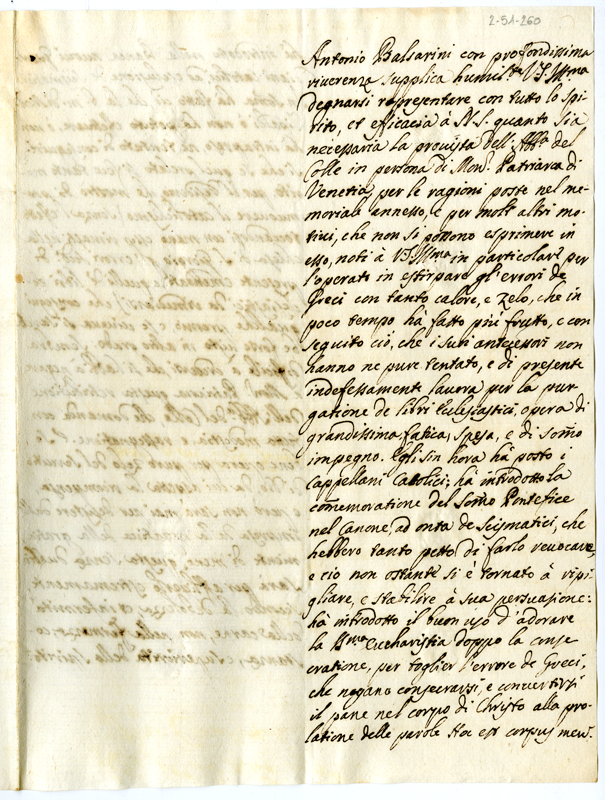 2-51-260
Antonio Balsarini con profondissima
riverenza supplica humil.te V.S. Ill.ma
degnarsi rapresentare con tutto lo spi
rito, et efficacia à N.S. quanto sia
necessaria la provista dell'
Colle in persona di Mon.r Patriarca di
Venetia, per le ragioni poste nel me-
moriale annesso, e per molt'altri mo-
tivi, che non si possono esprimere in
esso, noti à V.S. Ill.ma in particolare per
l'operati in estirpare gl'errori de
Greci con tanto calore, e zelo, che in
poco tempo hà fatto più frutto, e con
seguito ciò, che i suoi antecessori non
hanno ne pure tentato, e di presente
indefessamente lavora per la pur
gatione de libri Eclesiastici, opera di
grandissima fatica, spesa, e di sommo
impegno. Egli sin hora hà posto i
Cappellani Cattolici; hà introdotto la
comemoratione del Sommo Pontefice
nel Canone, ad onta de Scismatici, che
hebbero tanto petto di farlo revocare,
e ciò non ostante si è tornato à ripi
gliare, e stabilire à sua persuasione:
hà introdotto il buon uso d'adorare
la Eucharistia doppo la conse
cratione, per toglier l'errore de Greci,
che negano consecrarsi, e convertirsi
il pane nel corpo di Christo alla pro-
latione delle parole Hoc est corpus meu.